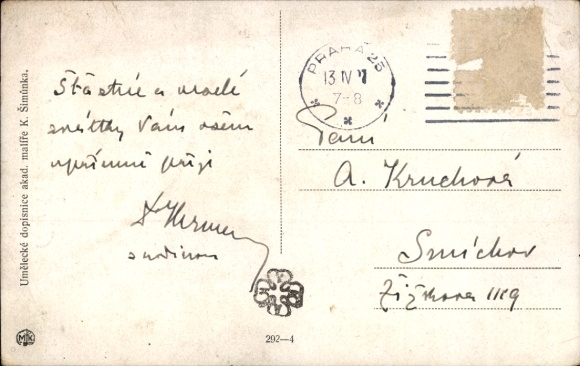 Umělecké dopisnice akad. malíře K. Šimůnka.
Šťastné a veselé
svátky Vám všem
upřímně přeji
s rodinou
PRAHA 25
13 IV
7-8
Paní
A. Kruchová
Smíchov
Žižkova 1119
MK
292—4